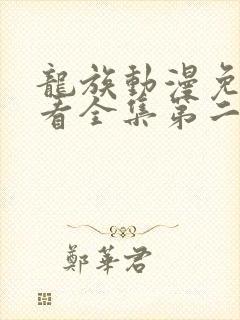 龍族動漫免
看全集第二
鄭華君